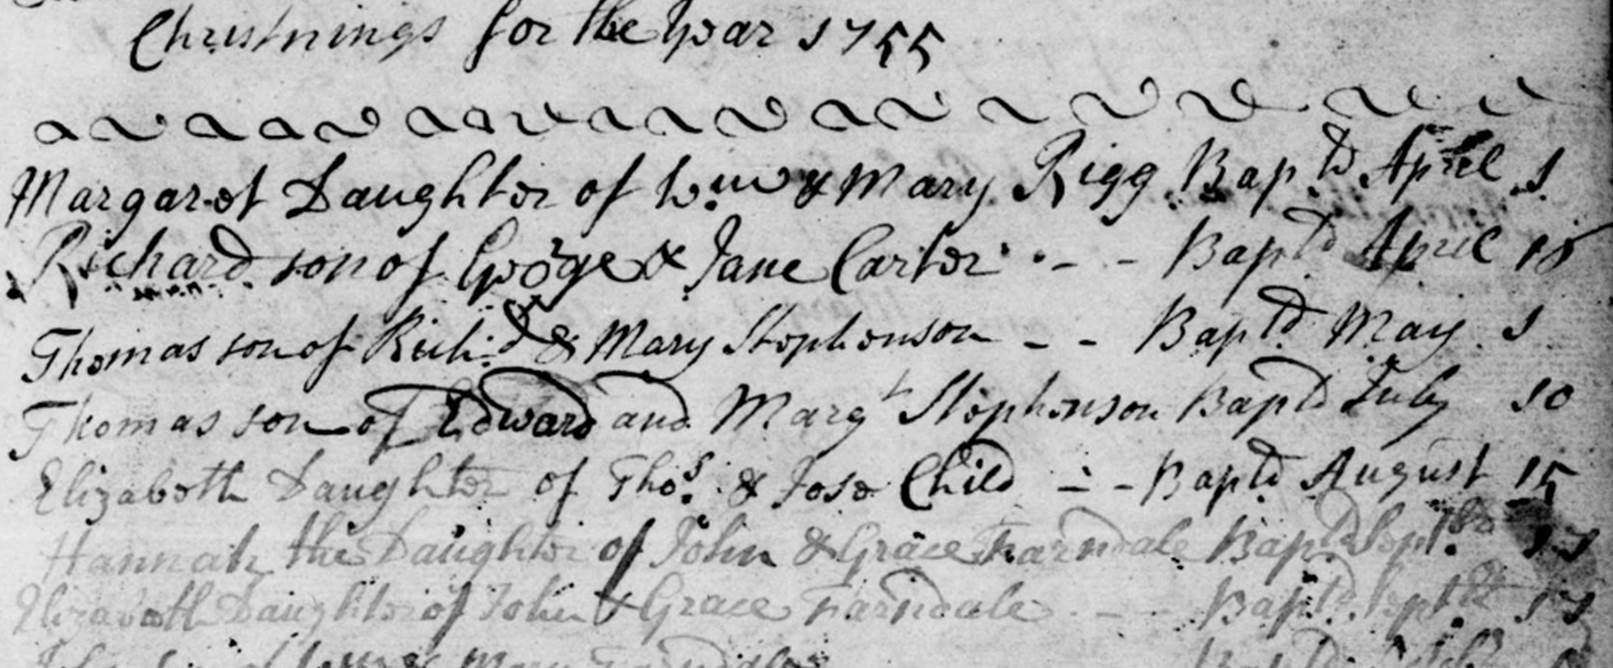 Christnings for the Year 1755
Margaret Daughter of Wm & Mary Rigg Baptd April 1
Richard son of George & Jane Carter - - Baptd April 18
Thomas son of Richd & Mary Stephenson - - Baptd May 1
Thomas son of Edward and Margt Stephenson Baptd July 10
Elizabeth Daughter of Thos & Jose Child - - Baptd August 15
Hannah the Daughter of John & Grace Farndale Baptd Septbr
Elizabeth Daughter of John & Grace Farndale - - Baptd Septbr
son of & Mary Farndale Baptd